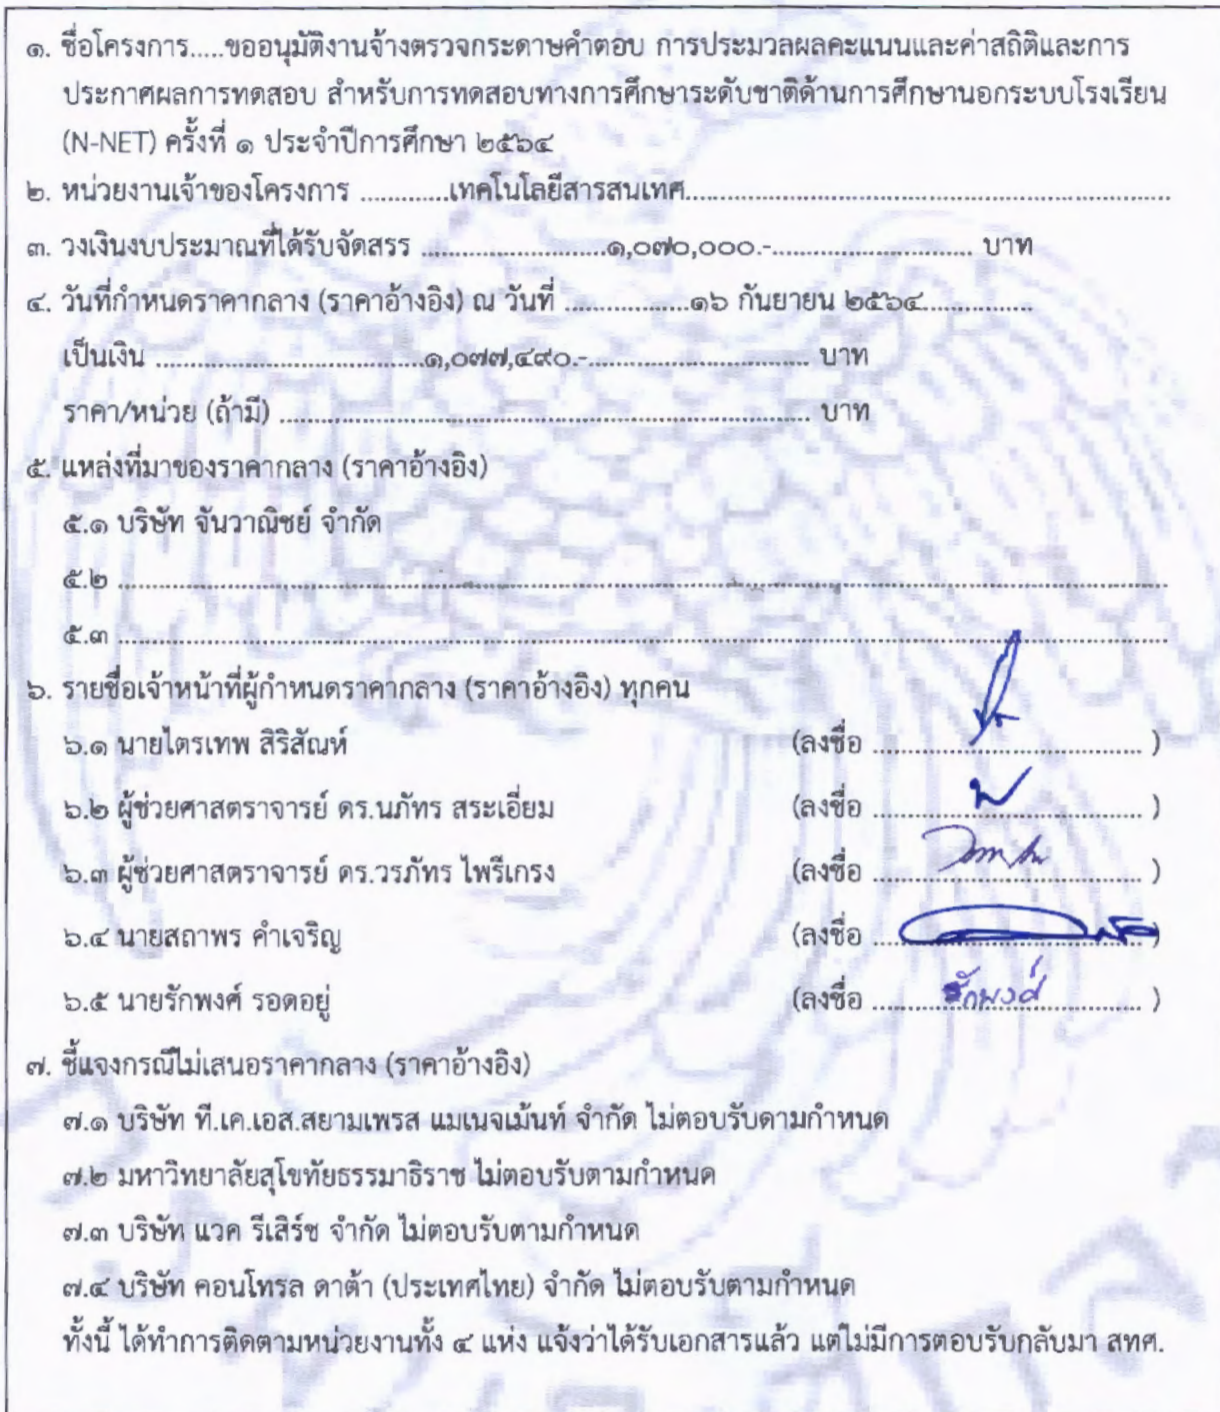 ๑. ชื่อโครงการ.....ขออนุมัติงานจ้างตรวจกระดาษคำตอบ การประมวลผลคะแนนและค่าสถิติและการ
ประกาศผลการทดสอบ สำหรับการทดสอบทางการศึกษาระดับชาติด้านการศึกษานอกระบบโรงเรียน
(N-NET) ครั้งที่ ๑ ประจำปีการศึกษา ๒๕๖๔
๒. หน่วยงานเจ้าของโครงการ .............เทคโนโลยีสารสนเทศ......................................................................
๓. วงเงินงบประมาณที่ได้รับจัดสรร ...........................๑,๐๗๐,๐๐๐.-............................. บาท
๔. วันที่กำหนดราคากลาง (ราคาอ้างอิง) ณ วันที่ ..................๑๖ กันยายน ๒๕๖๔................
เป็นเงิน .......................................๑,๐๗๗,๔๙๐.-................................ บาท
ราคา/หน่วย (ถ้ามี) ............................................................................. บาท
๕. แหล่งที่มาของราคากลาง (ราคาอ้างอิง)
๕.๑ บริษัท จันวาณิชย์ จำกัด
๕.๒ ......................................................................................................................
๕.๓ ......................................................................................................................
๖. รายชื่อเจ้าหน้าที่ผู้กำหนดราคากลาง (ราคาอ้างอิง) ทุกคน
๖.๑ นายไตรเทพ สิริสัณห์ (ลงชื่อ ....................................... )
๖.๒ ผู้ช่วยศาสตราจารย์ ดร.นภัทร สระเอี่ยม (ลงชื่อ ....................................... )
๖.๓ ผู้ช่วยศาสตราจารย์ ดร.วรภัทร ไพรีเกรง (ลงชื่อ ....................................... )
๖.๔ นายสถาพร คำเจริญ (ลงชื่อ ....................................... )
๖.๕ นายรักพงศ์ รอดอยู่ (ลงชื่อ ..........รักพงศ์.......... )
๗. ชี้แจงกรณีไม่เสนอราคากลาง (ราคาอ้างอิง)
๗.๑ บริษัท ที.เค.เอส.สยามเพรส แมเนจเม้นท์ จำกัด ไม่ตอบรับตามกำหนด
๗.๒ มหาวิทยาลัยสุโขทัยธรรมาธิราช ไม่ตอบรับตามกำหนด
๗.๓ บริษัท แวค รีเสิร์ช จำกัด ไม่ตอบรับตามกำหนด
๗.๔ บริษัท คอนโทรล ดาต้า (ประเทศไทย) จำกัด ไม่ตอบรับตามกำหนด
ทั้งนี้ ได้ทำการติดตามหน่วยงานทั้ง ๔ แห่ง แจ้งว่าได้รับเอกสารแล้ว แต่ไม่มีการตอบรับกลับมา สทศ.